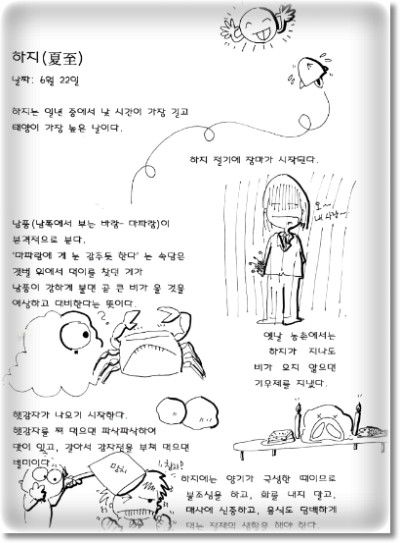 하지(夏至)
날짜: 6월 22일
하지는 일년 중에서 낮 시간이 가장 길고
태양이 가장 높은 날이다.
하지 절기에 장마가 시작된다.
오~
내사랑~
남풍(남쪽에서 부는 바람- 마파람)이
본격적으로 분다.
'마파람에 게 눈 감추듯 한다' 는 속담은
갯벌 위에서 먹이를 찾던 게가
남풍이 강하게 불면 곧 큰 비가 올 것을
예상하고 대비한다는 뜻이다.
?
옛날 농촌에서는
하지가 지나도
비가 오지 않으면
기우제를 지냈다.
햇감자가 나오기 시작한다.
햇감자를 쪄 먹으면 파삭파삭하여
맛이 있고, 갈아서 감자전을 부쳐 먹으면
별미이다.
하지에는 양기가 극성한 때이므로
불조심을 하고, 화를 내지 말고,
매사에 신중하고, 음식도 담백하게
먹는 절제의 생활을 해야 한다.